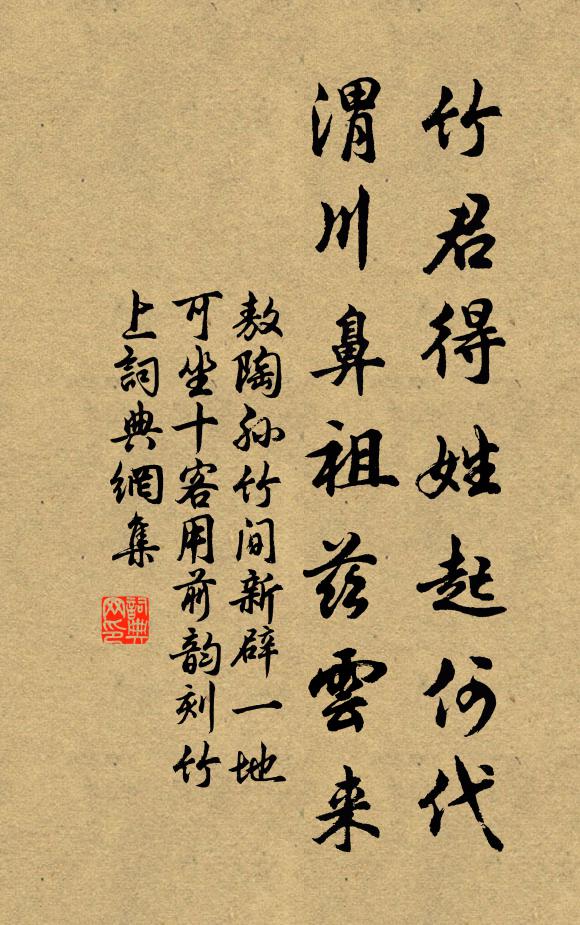 竹君得姓起何代
渭川鼻祖茲雲来
敖陶孫竹间新辟一地
可坐十客用前韵刻竹
上詞典網集
詞典网印